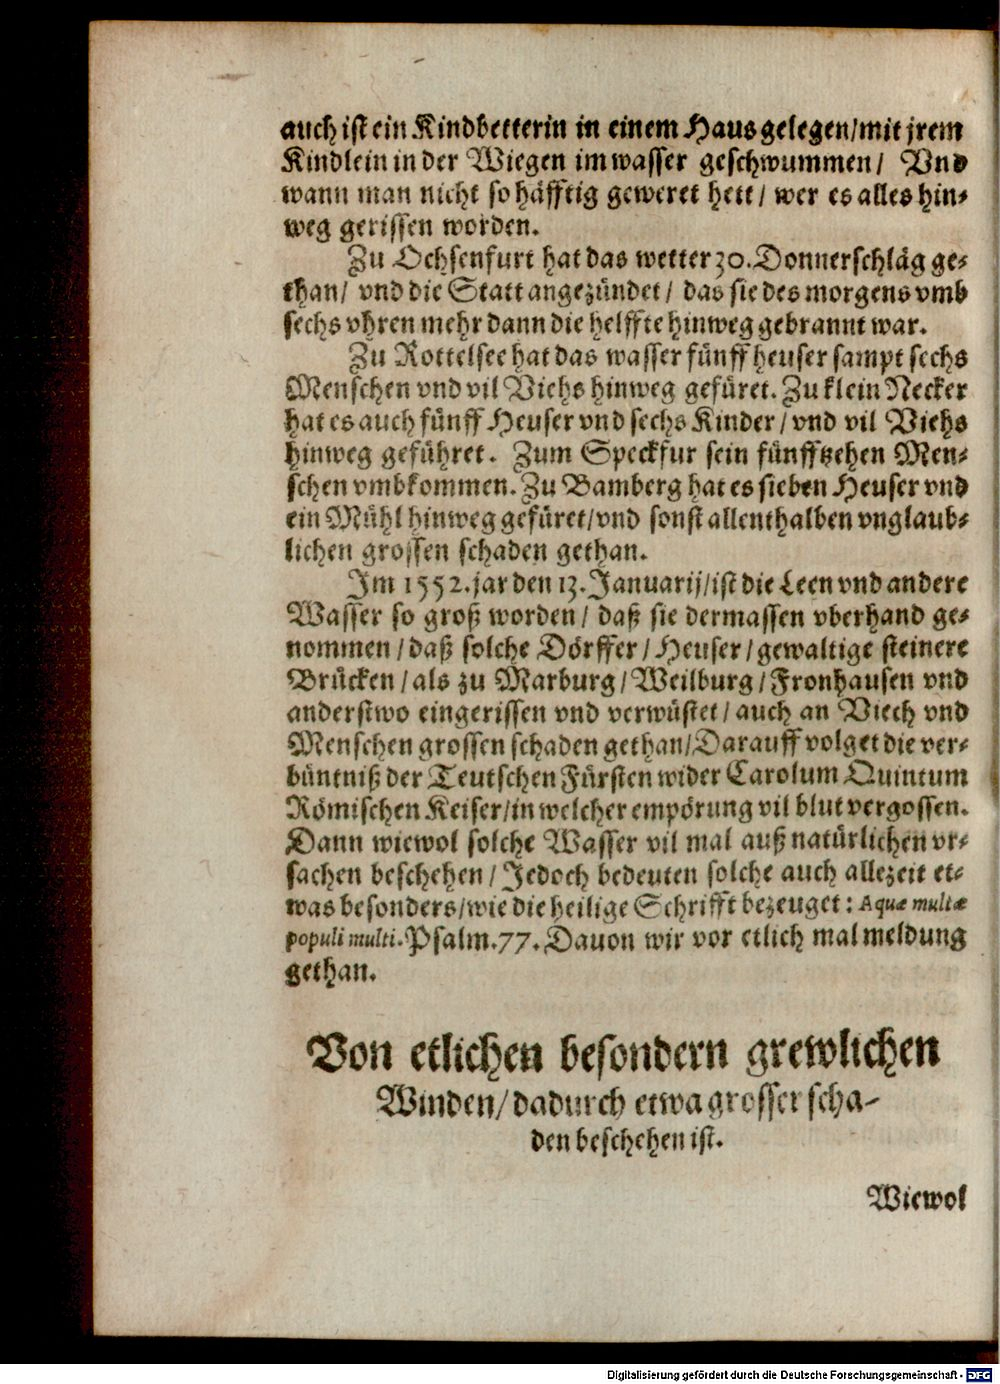 auch ist ein Kindbetterin in einem Haus gelegen/mit jrem
Kindlein in der Wiegen im wasser geschwummen/ Vnd
wann man nicht so häfftig geweret hett/ wer es alles hin-
weg gerissen worden.
Zu Ochsenfurt hat das wetter 30. Donnerschläg ge-
than/ vnd die Statt angezündet/ das sie des morgens vmb
sechs vhren mehr dann die helffte hinweg gebrannt war.
Zu Rottelsee hat das wasser fünff heuser sampt sechs
Menschen vnd vil Viehs hinweg gefüret. Zu klein Necker
hat es auch fünff Heuser vnd sechs Kinder/ vnd vil Viehs
hinweg geführet. Zum Speckfur sein fünfftzehen Men-
schen vmbkommen. Zu Bamberg hat es sieben Heuser vnd
ein Mühl hinweg gefüret/vnd sonst allenthalben vnglaub-
lichen grossen schaden gethan.
Im 1552. jar den 13. Januarij/ist die Leen vnd andere
Wasser so groß worden/ daß sie dermassen vberhand ge-
nommen/daß solche Dörffer/Heuser/gewaltige steinere
Brücken/als zu Marburg/Weilburg/Fronhausen vnd
anderstwo eingerissen vnd verwüstet/auch an Viech vnd
Menschen grossen schaden gethan/Darauff volget die ver-
büntniß der Teutschen Fürsten wider Carolum Quintum
Römischen Keiser/in welcher empörung vil blut vergossen.
Dann wiewol solche Wasser vil mal auß natürlichen vr-
sachen beschehen/Jedoch bedeuten solche auch allezeit et-
was besonders/wie die heilige Schrifft bezeuget: Aquæ multæ
populi multi. Psalm. 77. Dauon wir vor etlich mal meldung
gethan.
Von etlichen besondern grewlichen
Winden/dadurch etwa grosser scha-
den beschehen ist.
Wiewol
Digitalisierung gefördert durch die Deutsche Forschungsgemeinschaft - DFG